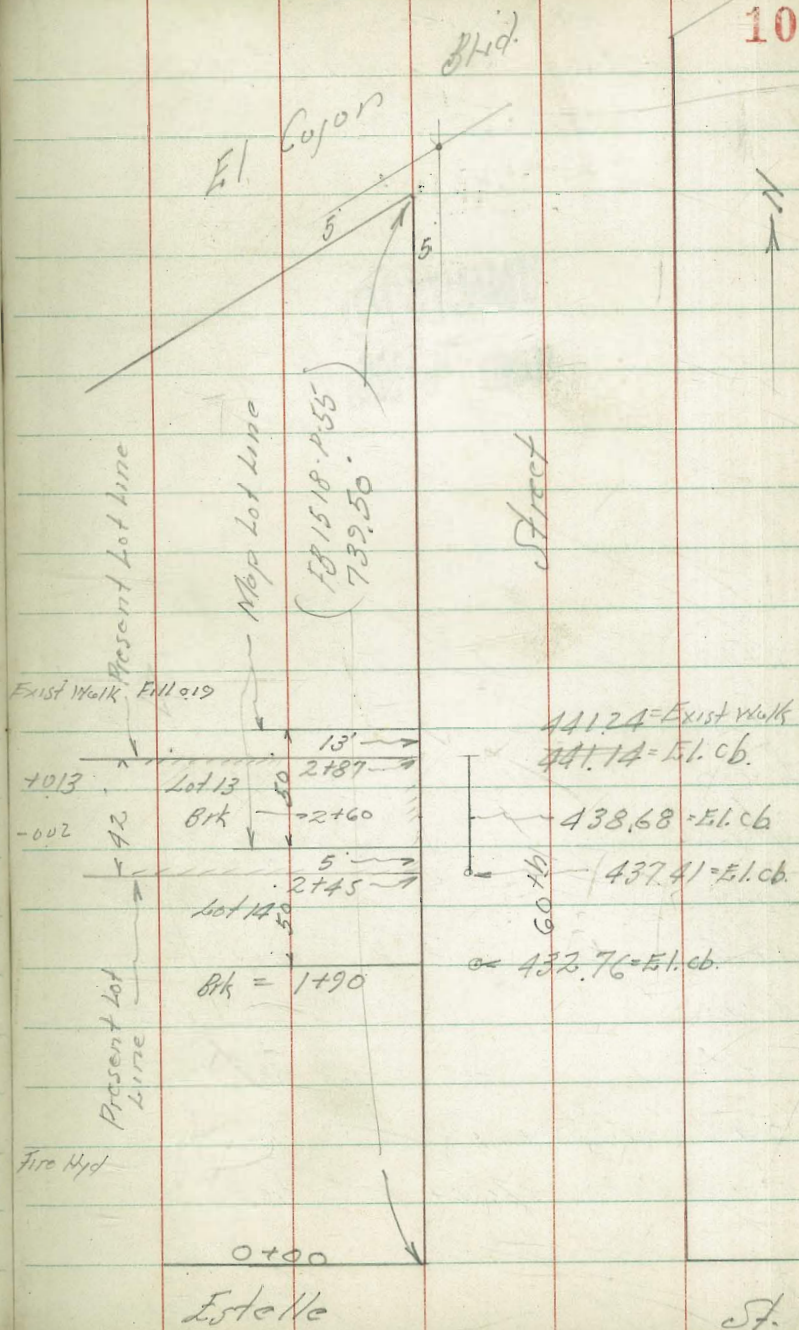 10
El Cajon Blvd.
N
5
5
Present Lot Line
Map Lot Line
(FB 1518-P.55)
739.50
Street
Exist Walk Fill 0.19
441.24=Exist Walk
13'
441.14=El. cb.
2+87
+0.13
Lot 13
50
Brk
2+60
438.68=El. cb
-0.02
42
5'
437.41=El. cb.
2+45
Lot 14
50
60th
432.76=El. cb.
Brk = 1+90
Present Lot
Line
Fire Hyd
0+00
Estelle St.